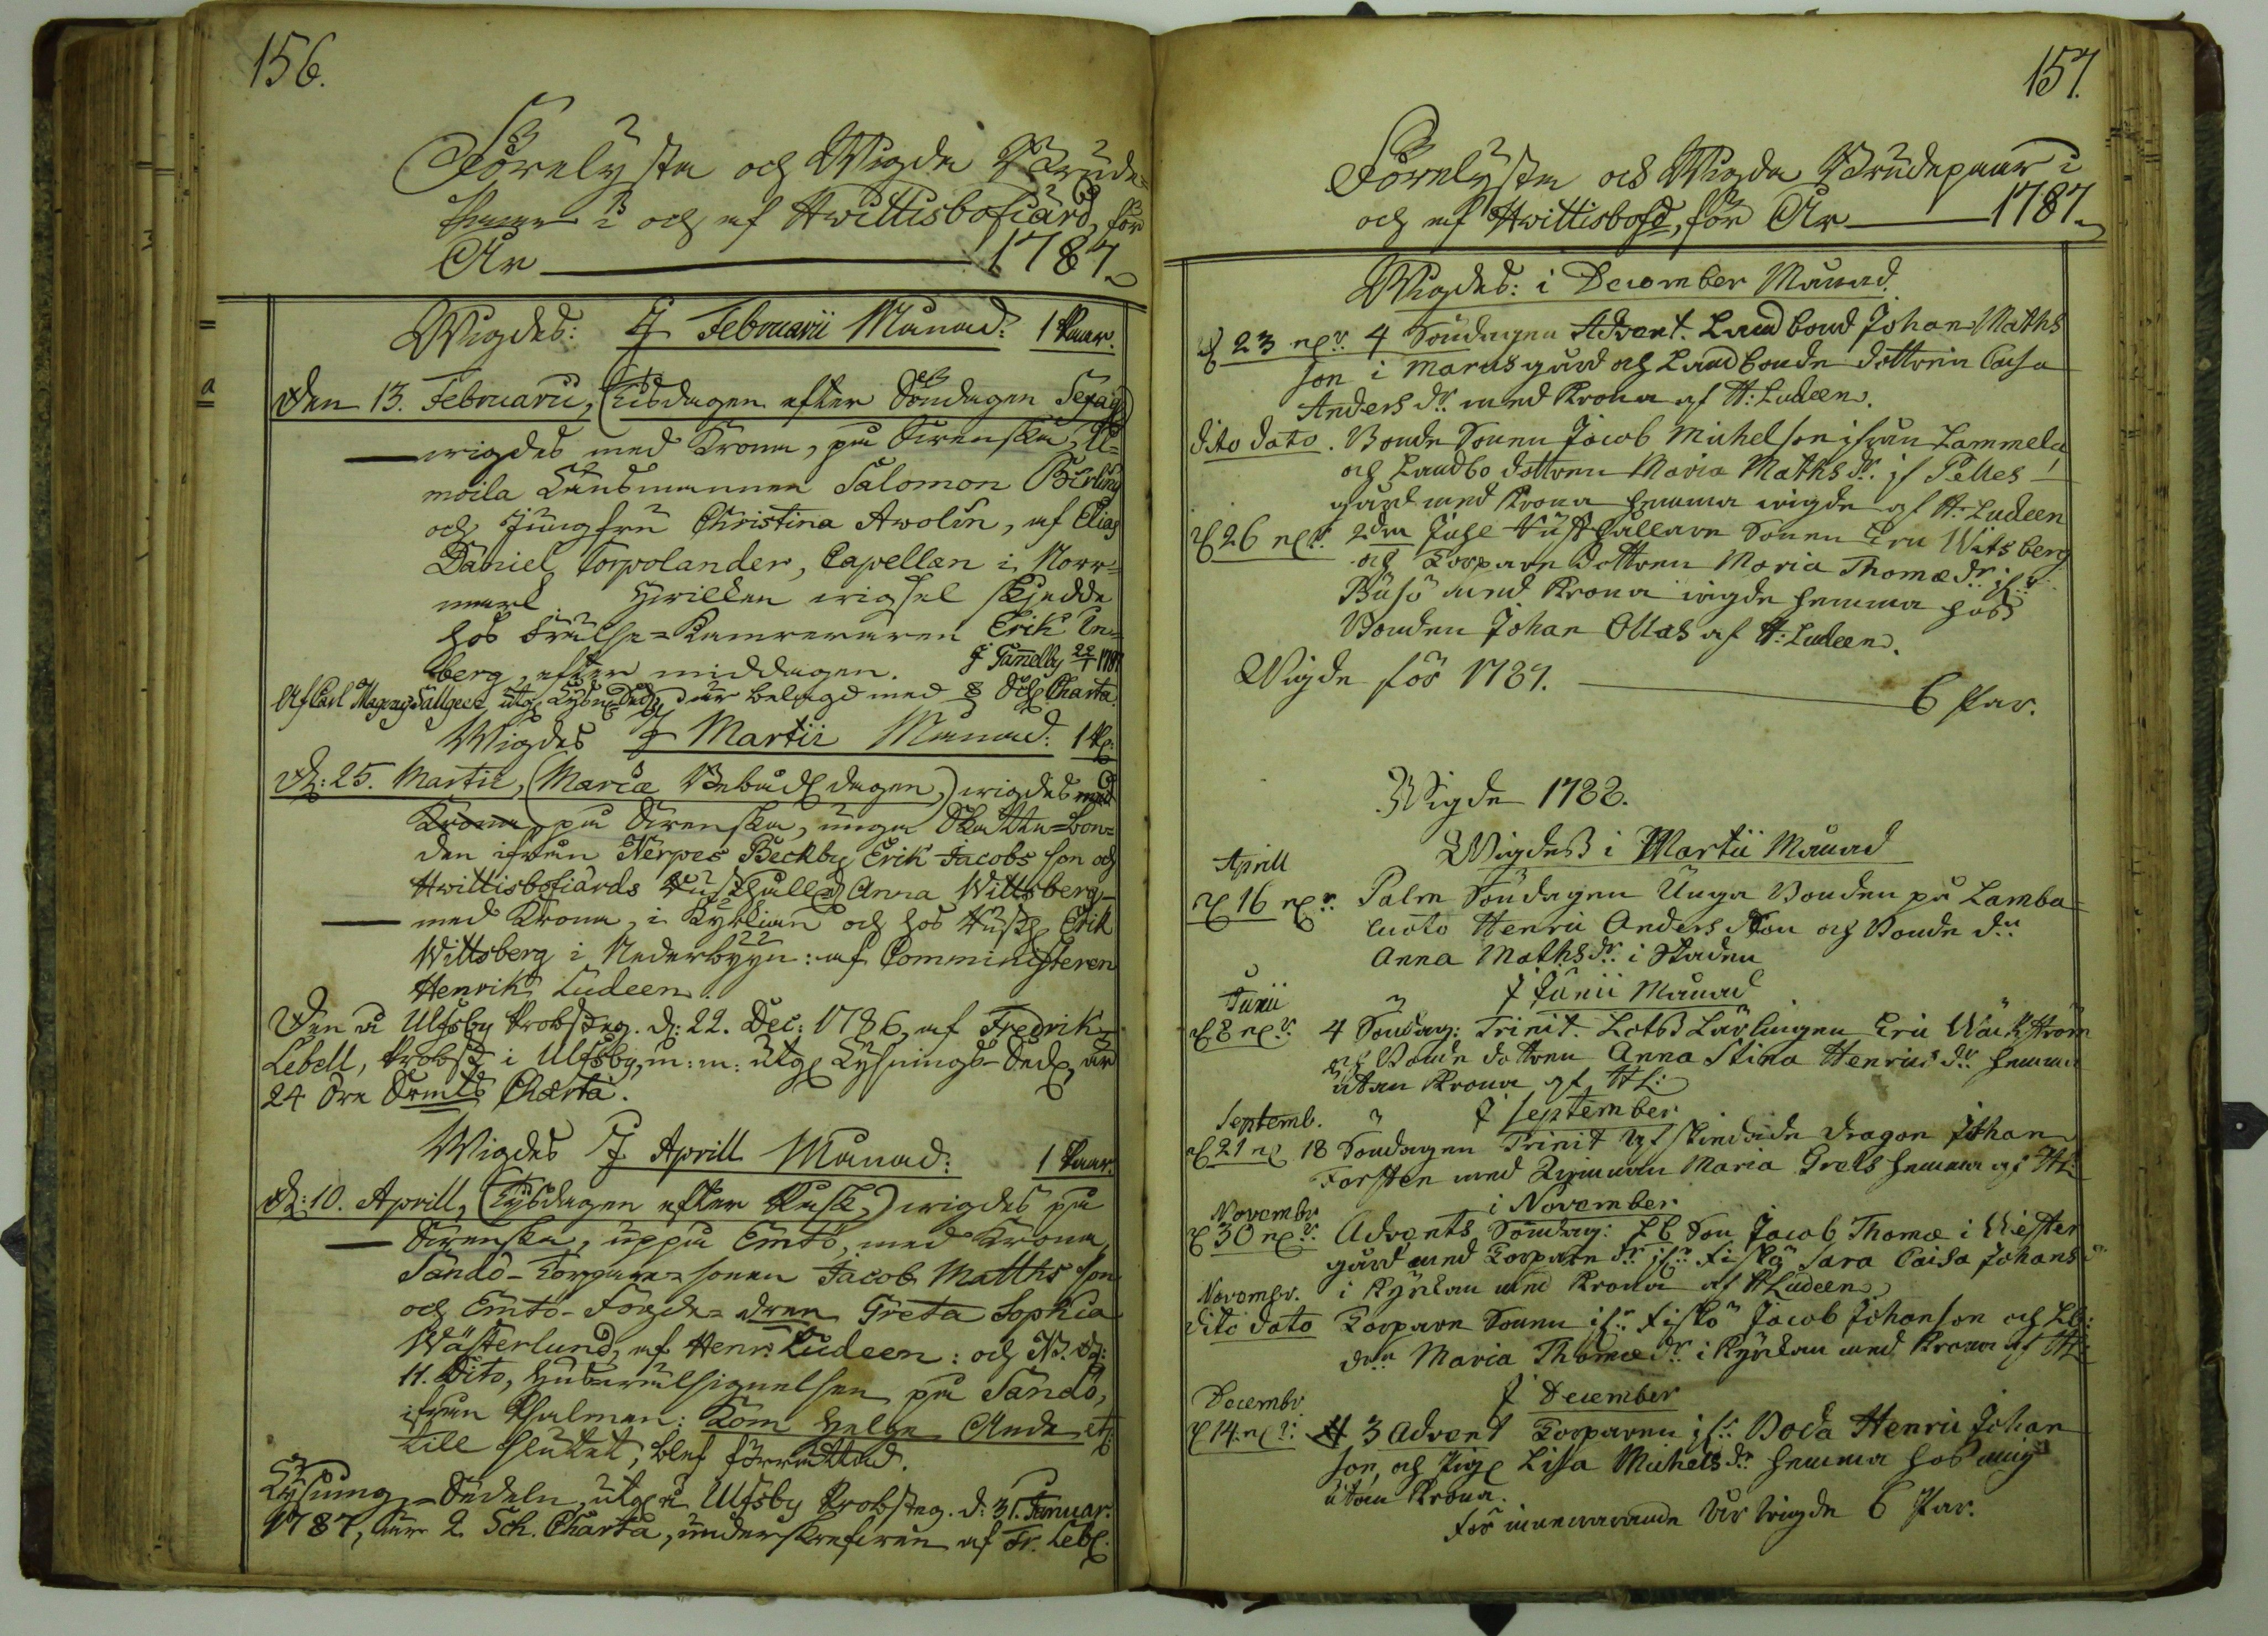 156.
Förelysta och Wigda Brude-
paar i och af Hwittisbofiärd, för
År 1787.
Wigdes: I Februarii Månad: 1 Paar.
Den 13. Februarii, (Tisdagen efter Söndagen Sexag)
wigdes med Krona, på Swenska, Ul-
moila Länsmannen Salomon Birling
och Jungfru Christina Awolin, af Elias
Daniel Torpolander, Capellan i Norr-
mark. Hwilken wigsel skjedde
hos Frälse-Kamreraren Erik En-
berg, efter middagen. J Tanelby 22/1 1787
Af Carl Magnus utg. Lysn. Sed. är belagd med 8 Sch. Charta.
Wigdes I Martii Månad: 1 P.
D: 25. Martii, (Mariæ Bebud. dagen,) wigdes med
Krona, på Swenska, unga Skatte-bon-
den ifrån Nerpes Beckby Erik Jacobs son och
Hwittisbofiärds Anna Wittsberg,
med Krona, i Kyrkian och hos Erik
Wittsberg i Nederbyyn: af Comministeren
Henrik Ludeen.
Den a Ulfsby Probsteg. d: 22. Dec: 1786, af Fredrik
Lebell, Probst i Ulfsby, m: m: utg. Lysnings-Sed. är
24 öre Srmts Charta.
Wigdes I Aprill Månad: 1 Paar.
D: 10. Aprill, (Tisdagen efter Påsk,) wigdes på
Swenska, uppå Emtö, med Krona,
Sandö-Torpare-sonen Jacob Matths son
och Emtö-Fogde-dren Greta Sophia
Wästerlund, af Henr: Ludeen: och N. d:
11. Dito, på Sandö,
ifrån Psalmen: Kom Helge Ande etc
till slutet, blef förrättad.
Lysning-Sedeln, utg. a Ulfsby Probsteg. d: 31. Januar.
1787, är 2 Sch. Charta, underskrefwen af Fr. Leb.
157.
Förelysta och Wigda Brudepaar i
och af Hwittisbofd, för År 1787.
Wigdes: i December Månad.
d 23 4 Söndagen Advent. Landbond Johan Maths
son i Marcusgård och Landbonde dottren Caisa
Anders dr. med Krona af H: Ludeen.
dito dato. Bonde Sonen Jacob Michelson ifrån Lammela
och Landbo dottren Maria Maths dr. if Pelles
gård med Krona hemma wigde af H: Ludeen
d 26 2dra Juhl Sonen Eric Witsberg
och Torpare dottren Maria Thomæ dr. if:
Busö med Krona wigde hemma hos
Bonden Johan Ollas af H: Ludeen.
Wigde för 1787. 6 Par.
Wigde 1788.
Wigdes i Martii Månad
Aprill
d 16 Palm Söndagen Unga Bonden på Lamba
luoto Henric Anders Son och Bonde dr.
Anna Maths dr. i Staden
I Junii Månad
Junii
d 8 4 Söndag: Trinit. Lots Lärlingen Eric Wäckström
och Bonde dottren Anna Stina Henrics dr. hemma
utan Krona af HL:
I September
Septemb.
d 21 18 Söndagen Trinit Afskiedade Dragon Johan
Forsten med Maria Grels hemma af HL:
i November
Novembr.
d 30 Advents Söndag: LB Son Jacob Thomæ i Wester
gård med Torpare dr. ifr: Fiskö Sara Caisa Johans dr
i Kyrkan med Krona af H Ludeen
Novembr.
Dito dato Torpare Sonen if: Fiskö Jacob Johanson och Lb:
drn Maria Thomæ dr. i Kyrkan med Krona af HL:
I December
Decembr.
d 14. 3 Advent Torparen if: Boda Henric Johan
son, och Pig. Lisa Michels dr. hemma hos mig
utan Krona.
För innewarande år Wigde 6 Par.